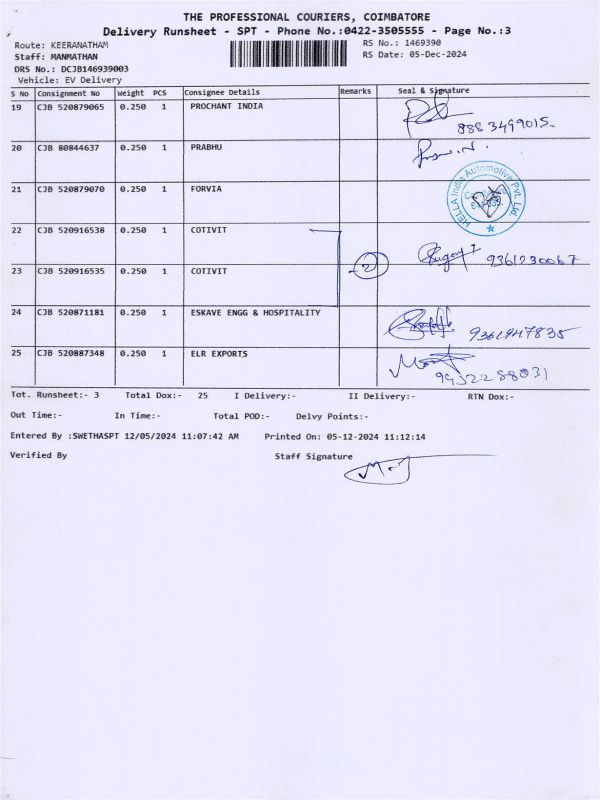 THE PROFESSIONAL COURIERS, COIMBATORE
Delivery Runsheet - SPT - Phone No.:0422-3505555 - Page No.:3
Route: KEERANATHAM RS No.: 1469390
Staff: MANMATHAN RS Date: 05-Dec-2024
DRS No.: DCJB146939003
Vehicle: EV Delivery
S No Consignment No Weight PCS Consignee Details Remarks Seal & Signature
19 CJB 520879065 0.250 1 PROCHANT INDIA
8883499015.
20 CJB 80844637 0.250 1 PRABHU
21 CJB 520879070 0.250 1 FORVIA
HELLA India Automotive Pvt. Ltd.
22 CJB 520916538 0.250 1 COTIVIT
2 9361230067
23 CJB 520916535 0.250 1 COTIVIT
24 CJB 520871181 0.250 1 ESKAVE ENGG & HOSPITALITY
9361947835
25 CJB 520887348 0.250 1 ELR EXPORTS
Tot. Runsheet:- 3 Total Dox:- 25 I Delivery:- II Delivery:- RTN Dox:-
Out Time:- In Time:- Total POD:- Delvy Points:-
Entered By :SWETHASPT 12/05/2024 11:07:42 AM Printed On: 05-12-2024 11:12:14
Verified By Staff Signature